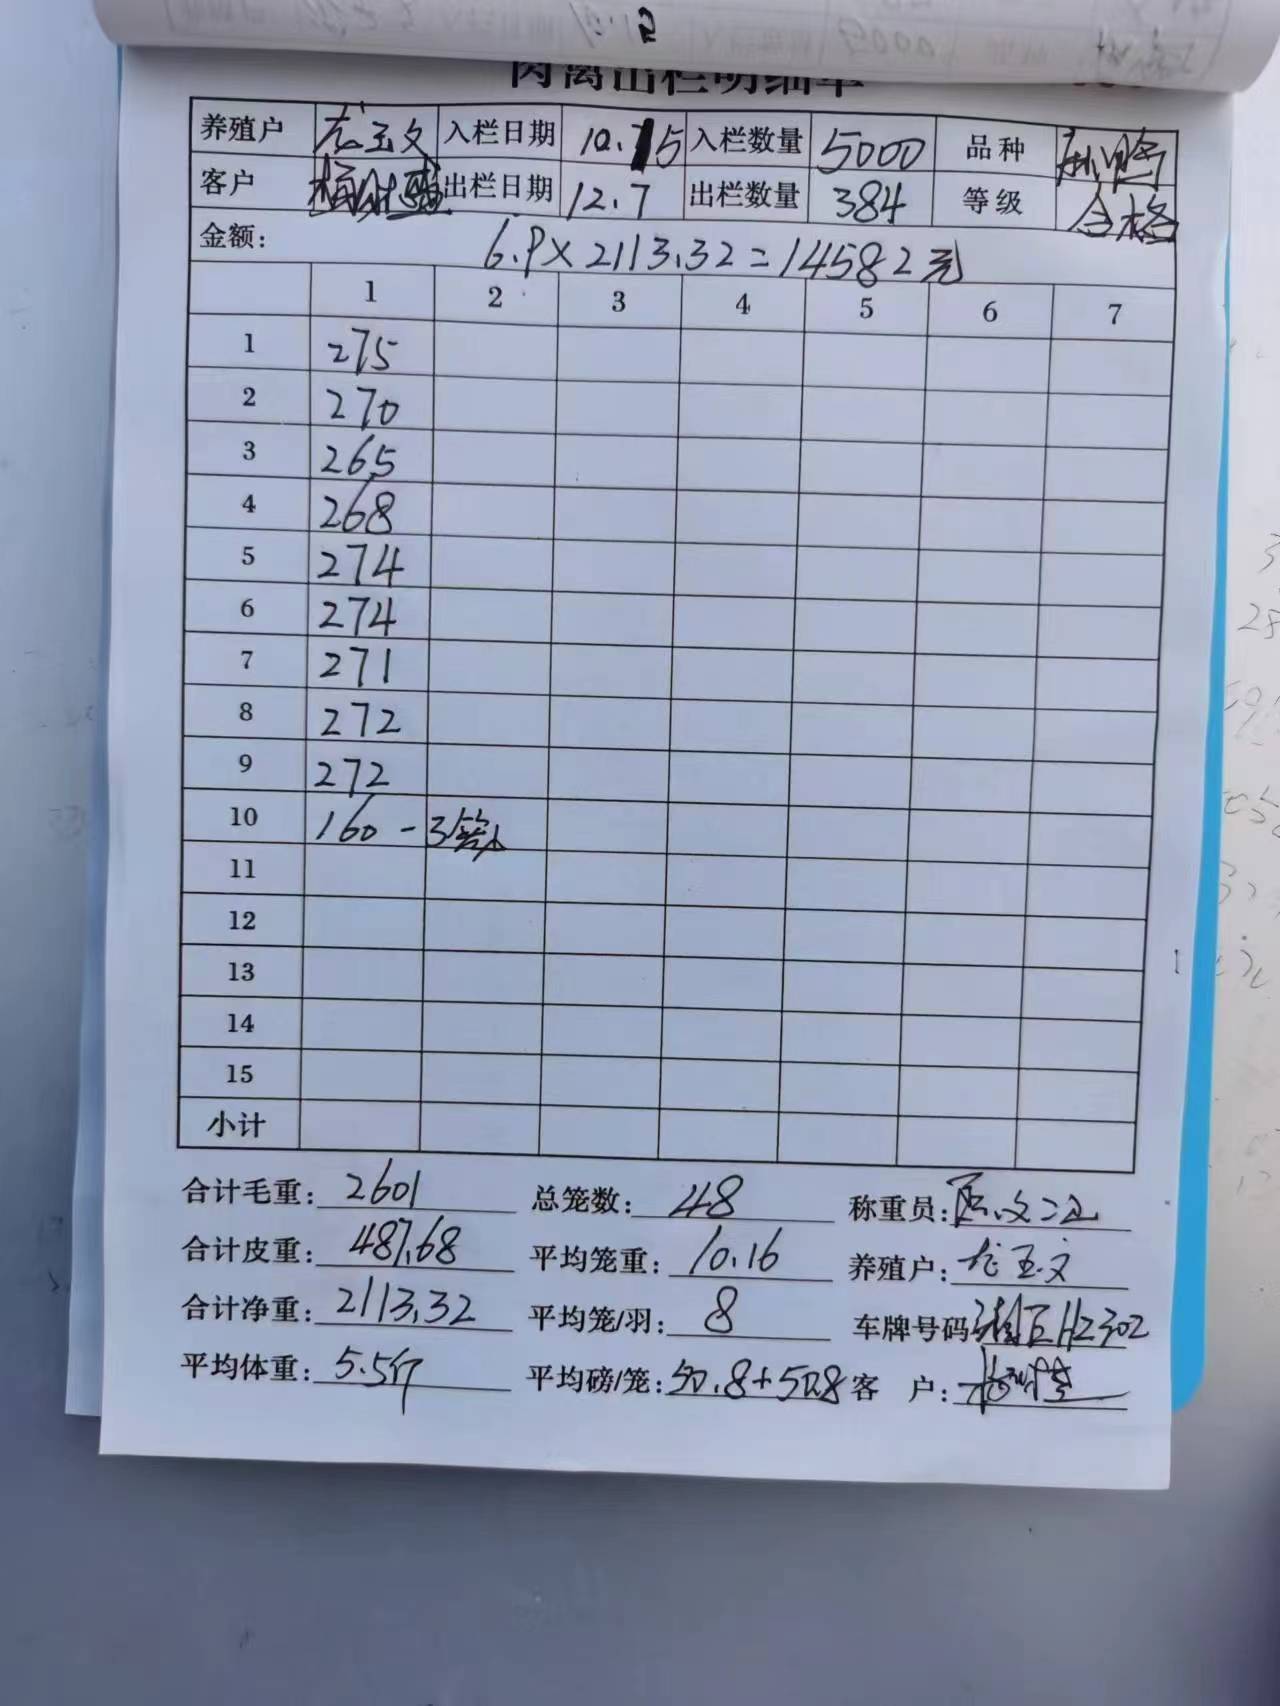 肉禽出栏明细单
养殖户 龙玉文 入栏日期 10.15 入栏数量 5000 品种
客户 出栏日期 12.7 出栏数量 384 等级 合格
金额: 6.9×2113.32=14582元
1 2 3 4 5 6 7
1 275
2 270
3 265
4 268
5 274
6 274
7 271
8 272
9 272
10 160-3
11
12
13
14
15
小计
合计毛重: 2601 总笼数: 48 称重员:
合计皮重: 487.68 平均笼重: 10.16 养殖户: 龙玉文
合计净重: 2113.32 平均笼/羽: 8 车牌号码
平均体重: 5.5斤 平均磅/笼: 50.8+50.8 客 户: